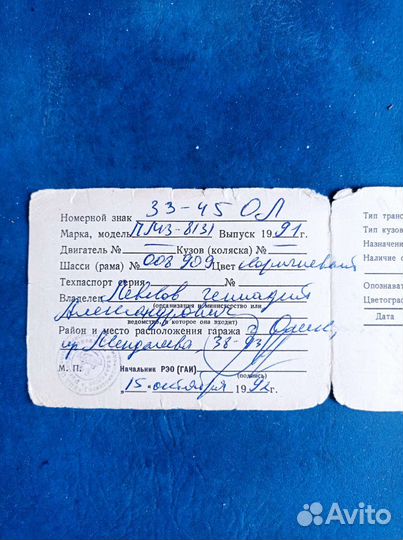 Номерной знак 33-45 ОЛ
Марка, модель ПМЗ-8131 Выпуск 1991 г.
Двигатель № — Кузов (коляска) № —
Шасси (рама) № 003909 Цвет коричневый
Техпаспорт серия — № —
Владелец Геннадий
(организация и министерство или
Александрович
ведомство, в которое она входит)
Район и место расположения гаража г. Омск,
пр. 38-93
М. П. Начальник РЭО (ГАИ)
(подпись)
„15" октября 1992 г.
Тип транс
Тип кузов
Назначени
Наличие с
Опознават
Цветограф
Дата
Avito